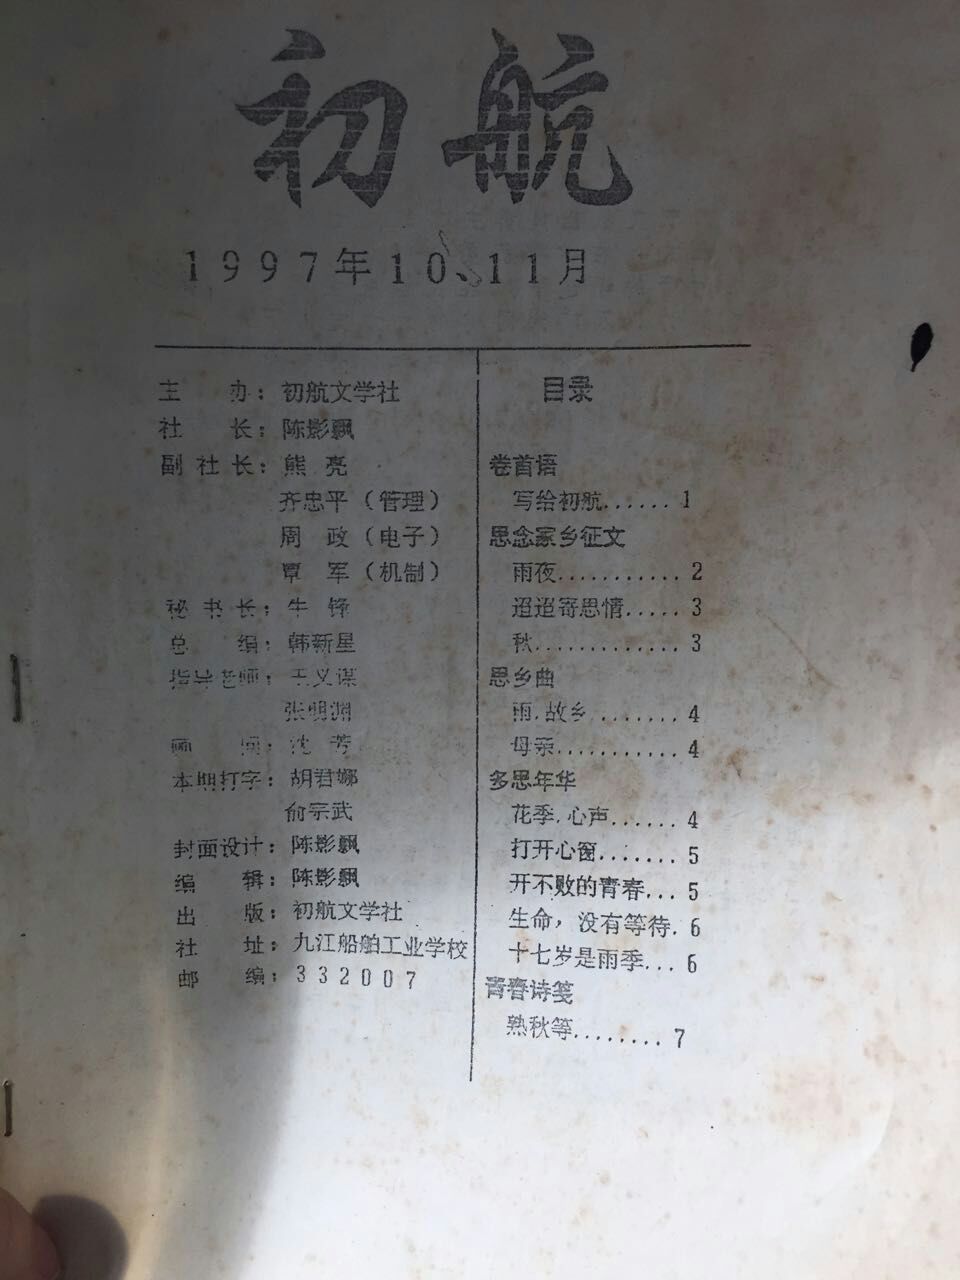 初航
1997年10、11月
主 办：初航文学社
社 长：陈影飘
副社长：熊 亮
齐忠平（管理）
周 政（电子）
覃 军（机制）
秘书长：牛 锋
总 编：韩新星
指导老师：王义谋
张明渊
沈 芳
本期打字：胡君娜
俞宗武
封面设计：陈影飘
编 辑：陈影飘
出 版：初航文学社
社 址：九江船舶工业学校
邮 编：332007
目录
卷首语
写给初航......1
思念家乡征文
雨夜...........2
迢迢寄思情.....3
秋.............3
思乡曲
雨.故乡.......4
母亲...........4
多思年华
花季.心声......4
打开心窗.......5
开不败的青春...5
生命，没有等待.6
十七岁是雨季...6
青春诗笺
熟秋等........7